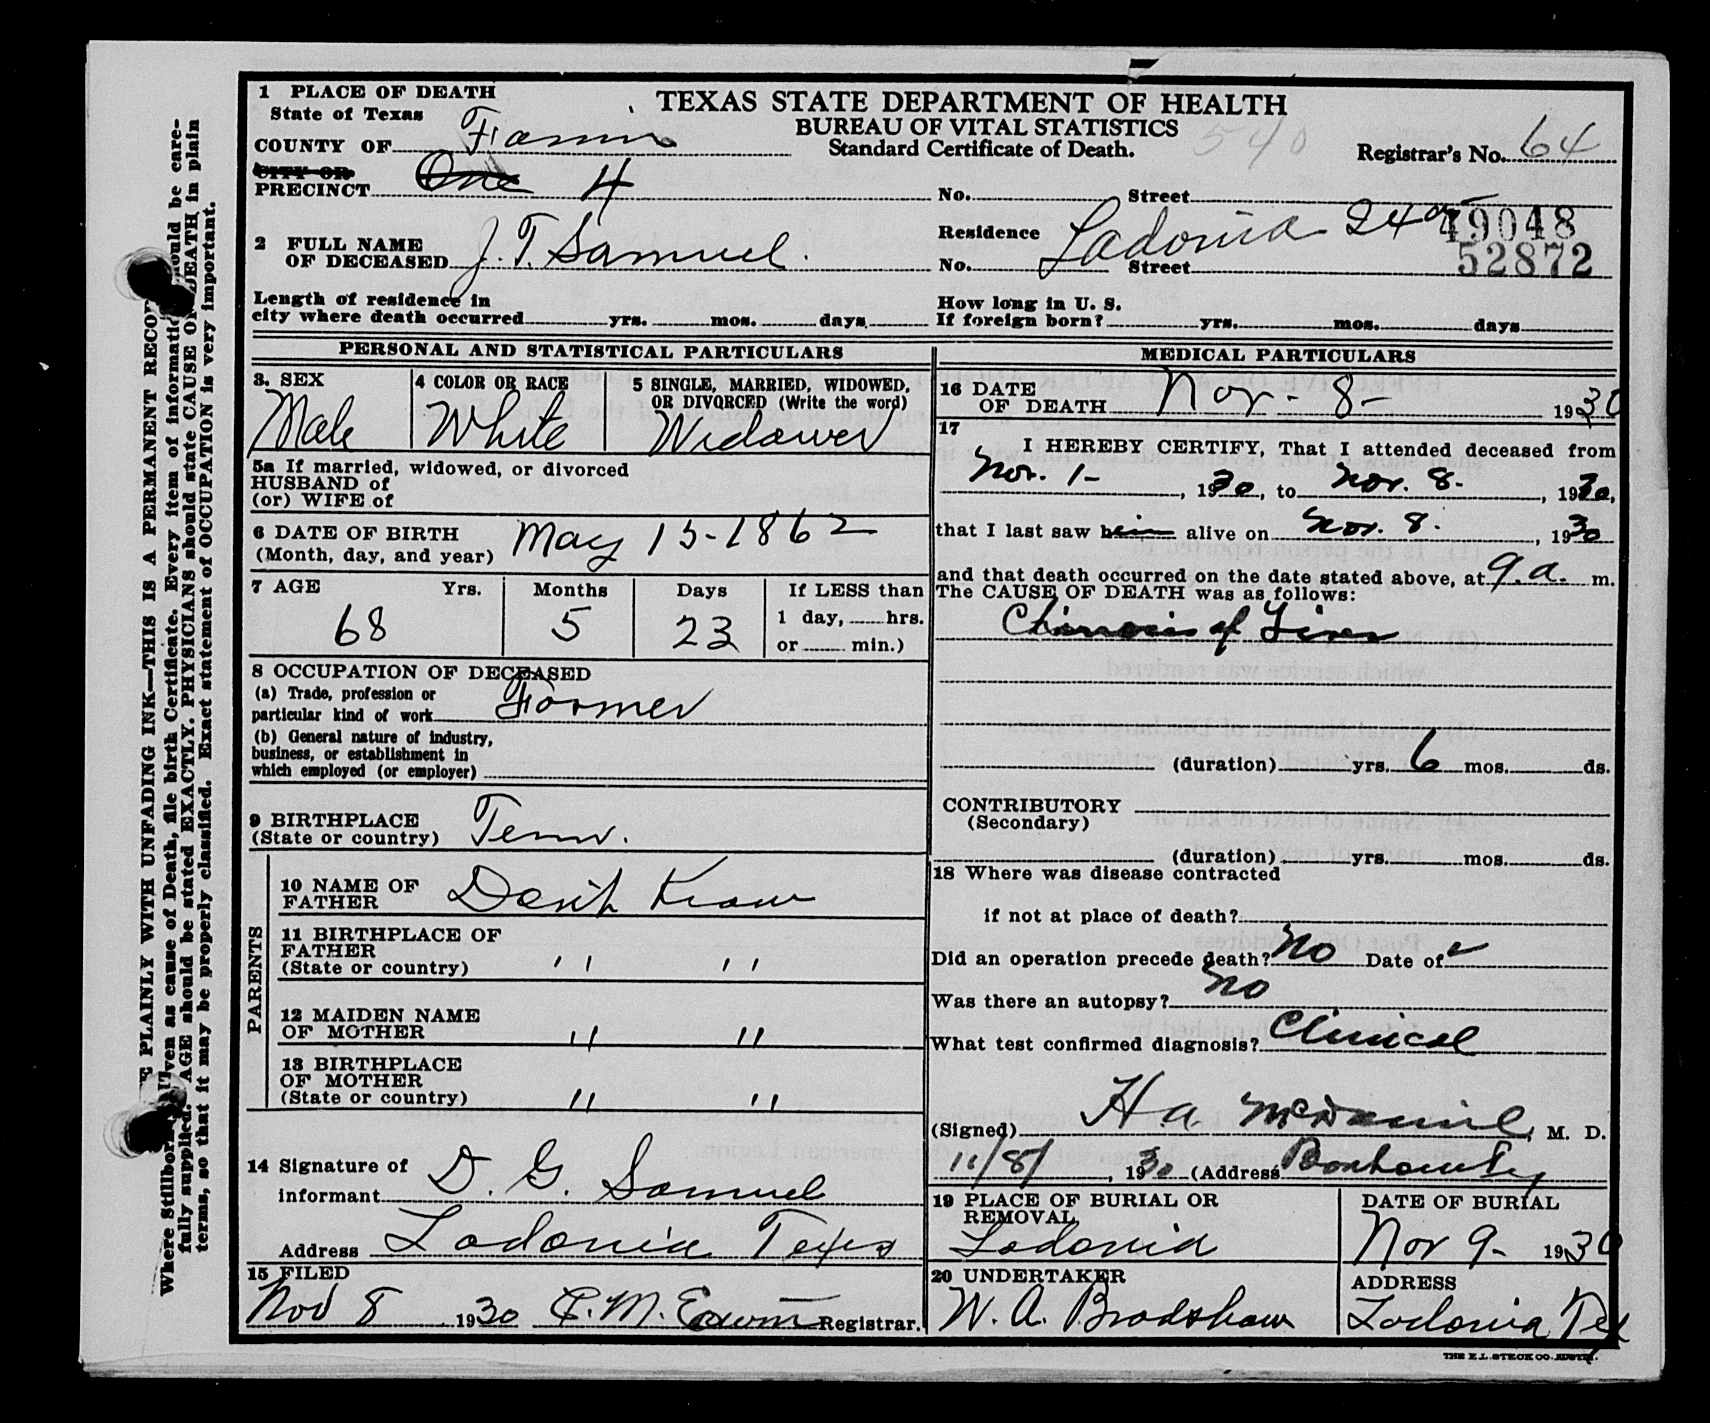 1 PLACE OF DEATH
State of Texas
COUNTY OF Fannin
CITY OR
PRECINCT One 4
TEXAS STATE DEPARTMENT OF HEALTH
BUREAU OF VITAL STATISTICS
Standard Certificate of Death.
540
Registrar's No. 64
No. Street
2 FULL NAME
OF DECEASED J. T. Samuel.
Residence Ladonia 24
49048
52872
No. Street
Length of residence in
city where death occurred yrs. mos. days
How long in U. S.
If foreign born? yrs. mos. days
PERSONAL AND STATISTICAL PARTICULARS
3. SEX
Male
4 COLOR OR RACE
White
5 SINGLE, MARRIED, WIDOWED,
OR DIVORCED (Write the word)
Widower
5a If married, widowed, or divorced
HUSBAND of
(or) WIFE of
6 DATE OF BIRTH
(Month, day, and year) May 15-1862
7 AGE Yrs. Months Days If LESS than
68 5 23 1 day, hrs.
or min.)
8 OCCUPATION OF DECEASED
(a) Trade, profession or
particular kind of work Farmer
(b) General nature of industry,
business, or establishment in
which employed (or employer)
9 BIRTHPLACE
(State or country) Tenn.
PARENTS
10 NAME OF
FATHER Don't Know
11 BIRTHPLACE OF
FATHER
(State or country) " "
12 MAIDEN NAME
OF MOTHER " "
13 BIRTHPLACE
OF MOTHER
(State or country) " "
14 Signature of
informant D. G. Samuel
Address Ladonia Texas
15 FILED
Nov 8 1930 Registrar.
MEDICAL PARTICULARS
16 DATE
OF DEATH Nov- 8- 1930
17
I HEREBY CERTIFY, That I attended deceased from
Nov. 1- , 1930, to Nov. 8- , 1930,
that I last saw him alive on Nov. 8. , 1930
and that death occurred on the date stated above, at 9. a. m.
The CAUSE OF DEATH was as follows:
of Liver
(duration) yrs. 6 mos. ds.
CONTRIBUTORY
(Secondary)
(duration) yrs. mos. ds.
18 Where was disease contracted
if not at place of death?
Did an operation precede death? No Date of
Was there an autopsy? No
What test confirmed diagnosis? Clinical
(Signed) H a. McDaniel, M. D.
11/8/ , 1930 (Address Bonham Tex
19 PLACE OF BURIAL OR
REMOVAL
Ladonia
DATE OF BURIAL
Nov 9- 1930
20 UNDERTAKER
W. A. Bradshaw
ADDRESS
Ladonia Tex
THE E.L. STECK CO. AUSTIN.
E PLAINLY WITH UNFADING INK—THIS IS A PERMANENT RECO
Where Stillborn given as cause of Death, file birth Certificate. Every item of information should be care-
fully supplied. AGE should be stated EXACTLY. PHYSICIANS should state CAUSE OF DEATH in plain
terms, so that it may be properly classified. Exact statement of OCCUPATION is very important.